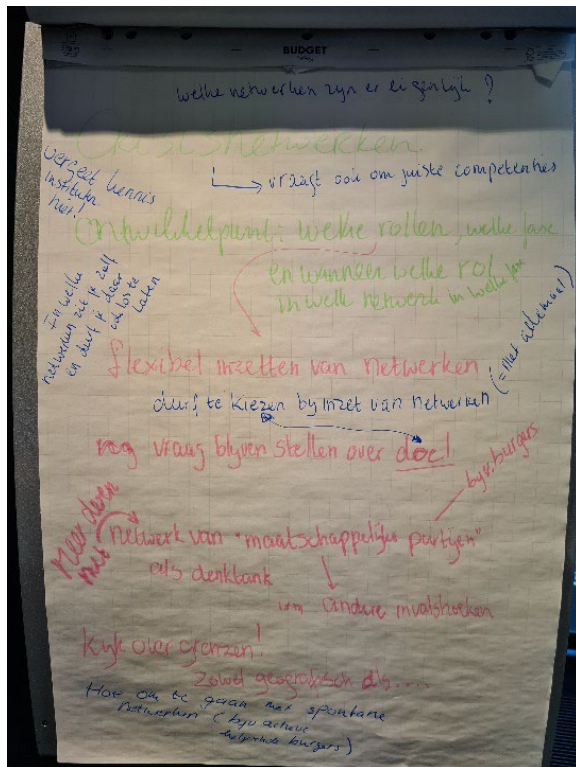 BUDGET
welke netwerken zyn er eigenlyk ?
Crisisnetwerken
vraagt ook om juiste competenties
vergeet kennis
instituten
niet!
Ontwikkelpunt: welke rollen, welke fase
en wanneer welke rol
in welk netwerk in welke fase
In welke
netwerken zit je zelf
en durf je daar
ook los te
laten
flexibel inzetten van netwerken
(= niet allemaal)
durf te kiezen by inzet van netwerken
vraag blyven stellen over doel
byv. burgers
Meer doen
met
netwerk van "maatschappelijke partijen"
als denktank
andere invalshoeken
Kyk over grenzen!
zowel geografisch als....
Hoe om te gaan met spontane
netwerken (byv actieve
helpende burgers)